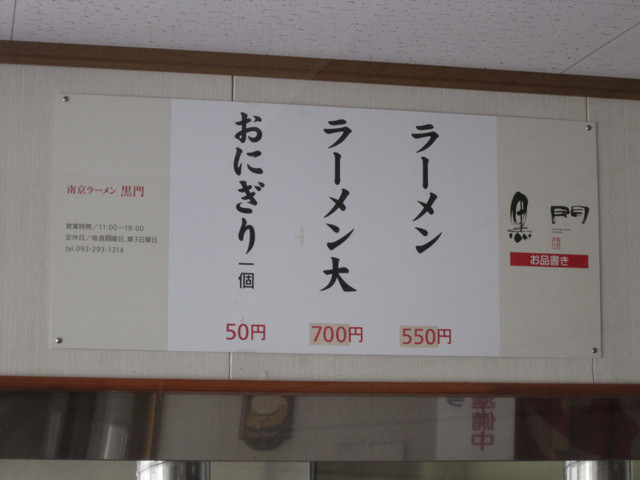 黒門
お品書き
ラーメン
550円
ラーメン大
700円
おにぎり一個
50円
南京ラーメン 黒門
営業時間/11:00~19:00
定休日/毎週月曜日、第3日曜日
tel.093-293-1314
準備中